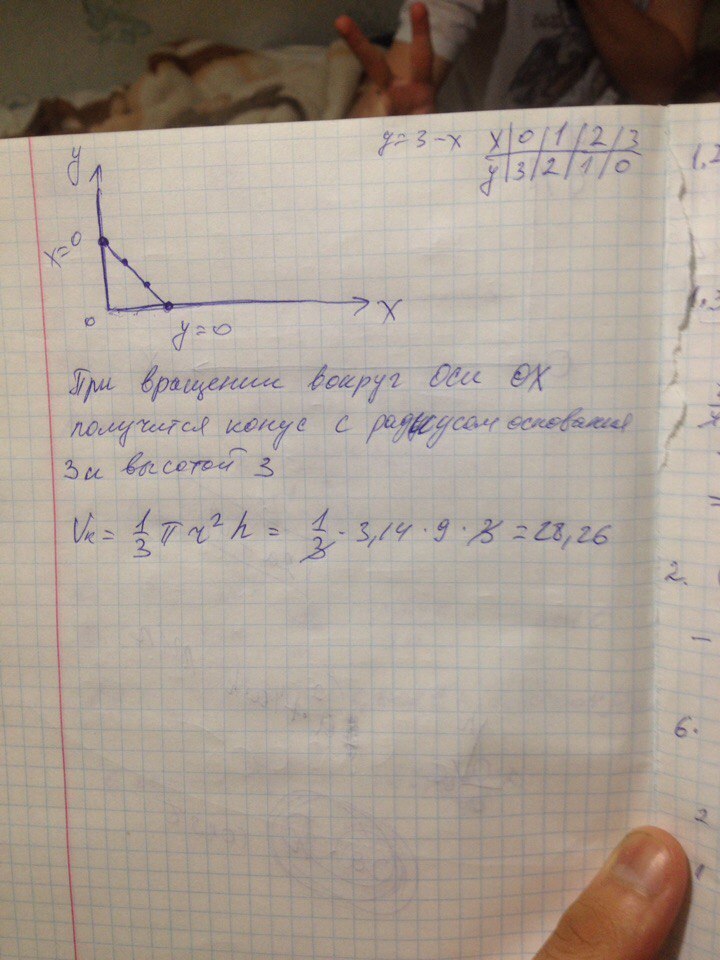 y=3-x x|0|1|2|3
y|3|2|1|0
y
x=0
0
y=0
X
При вращении вокруг оси OX
получится конус с радиусом основания
3 и высотой 3
Vк = 1/3 π r² h = 1/3 · 3,14 · 9 · 3 = 28,26
1,2
1,3
2.
6.